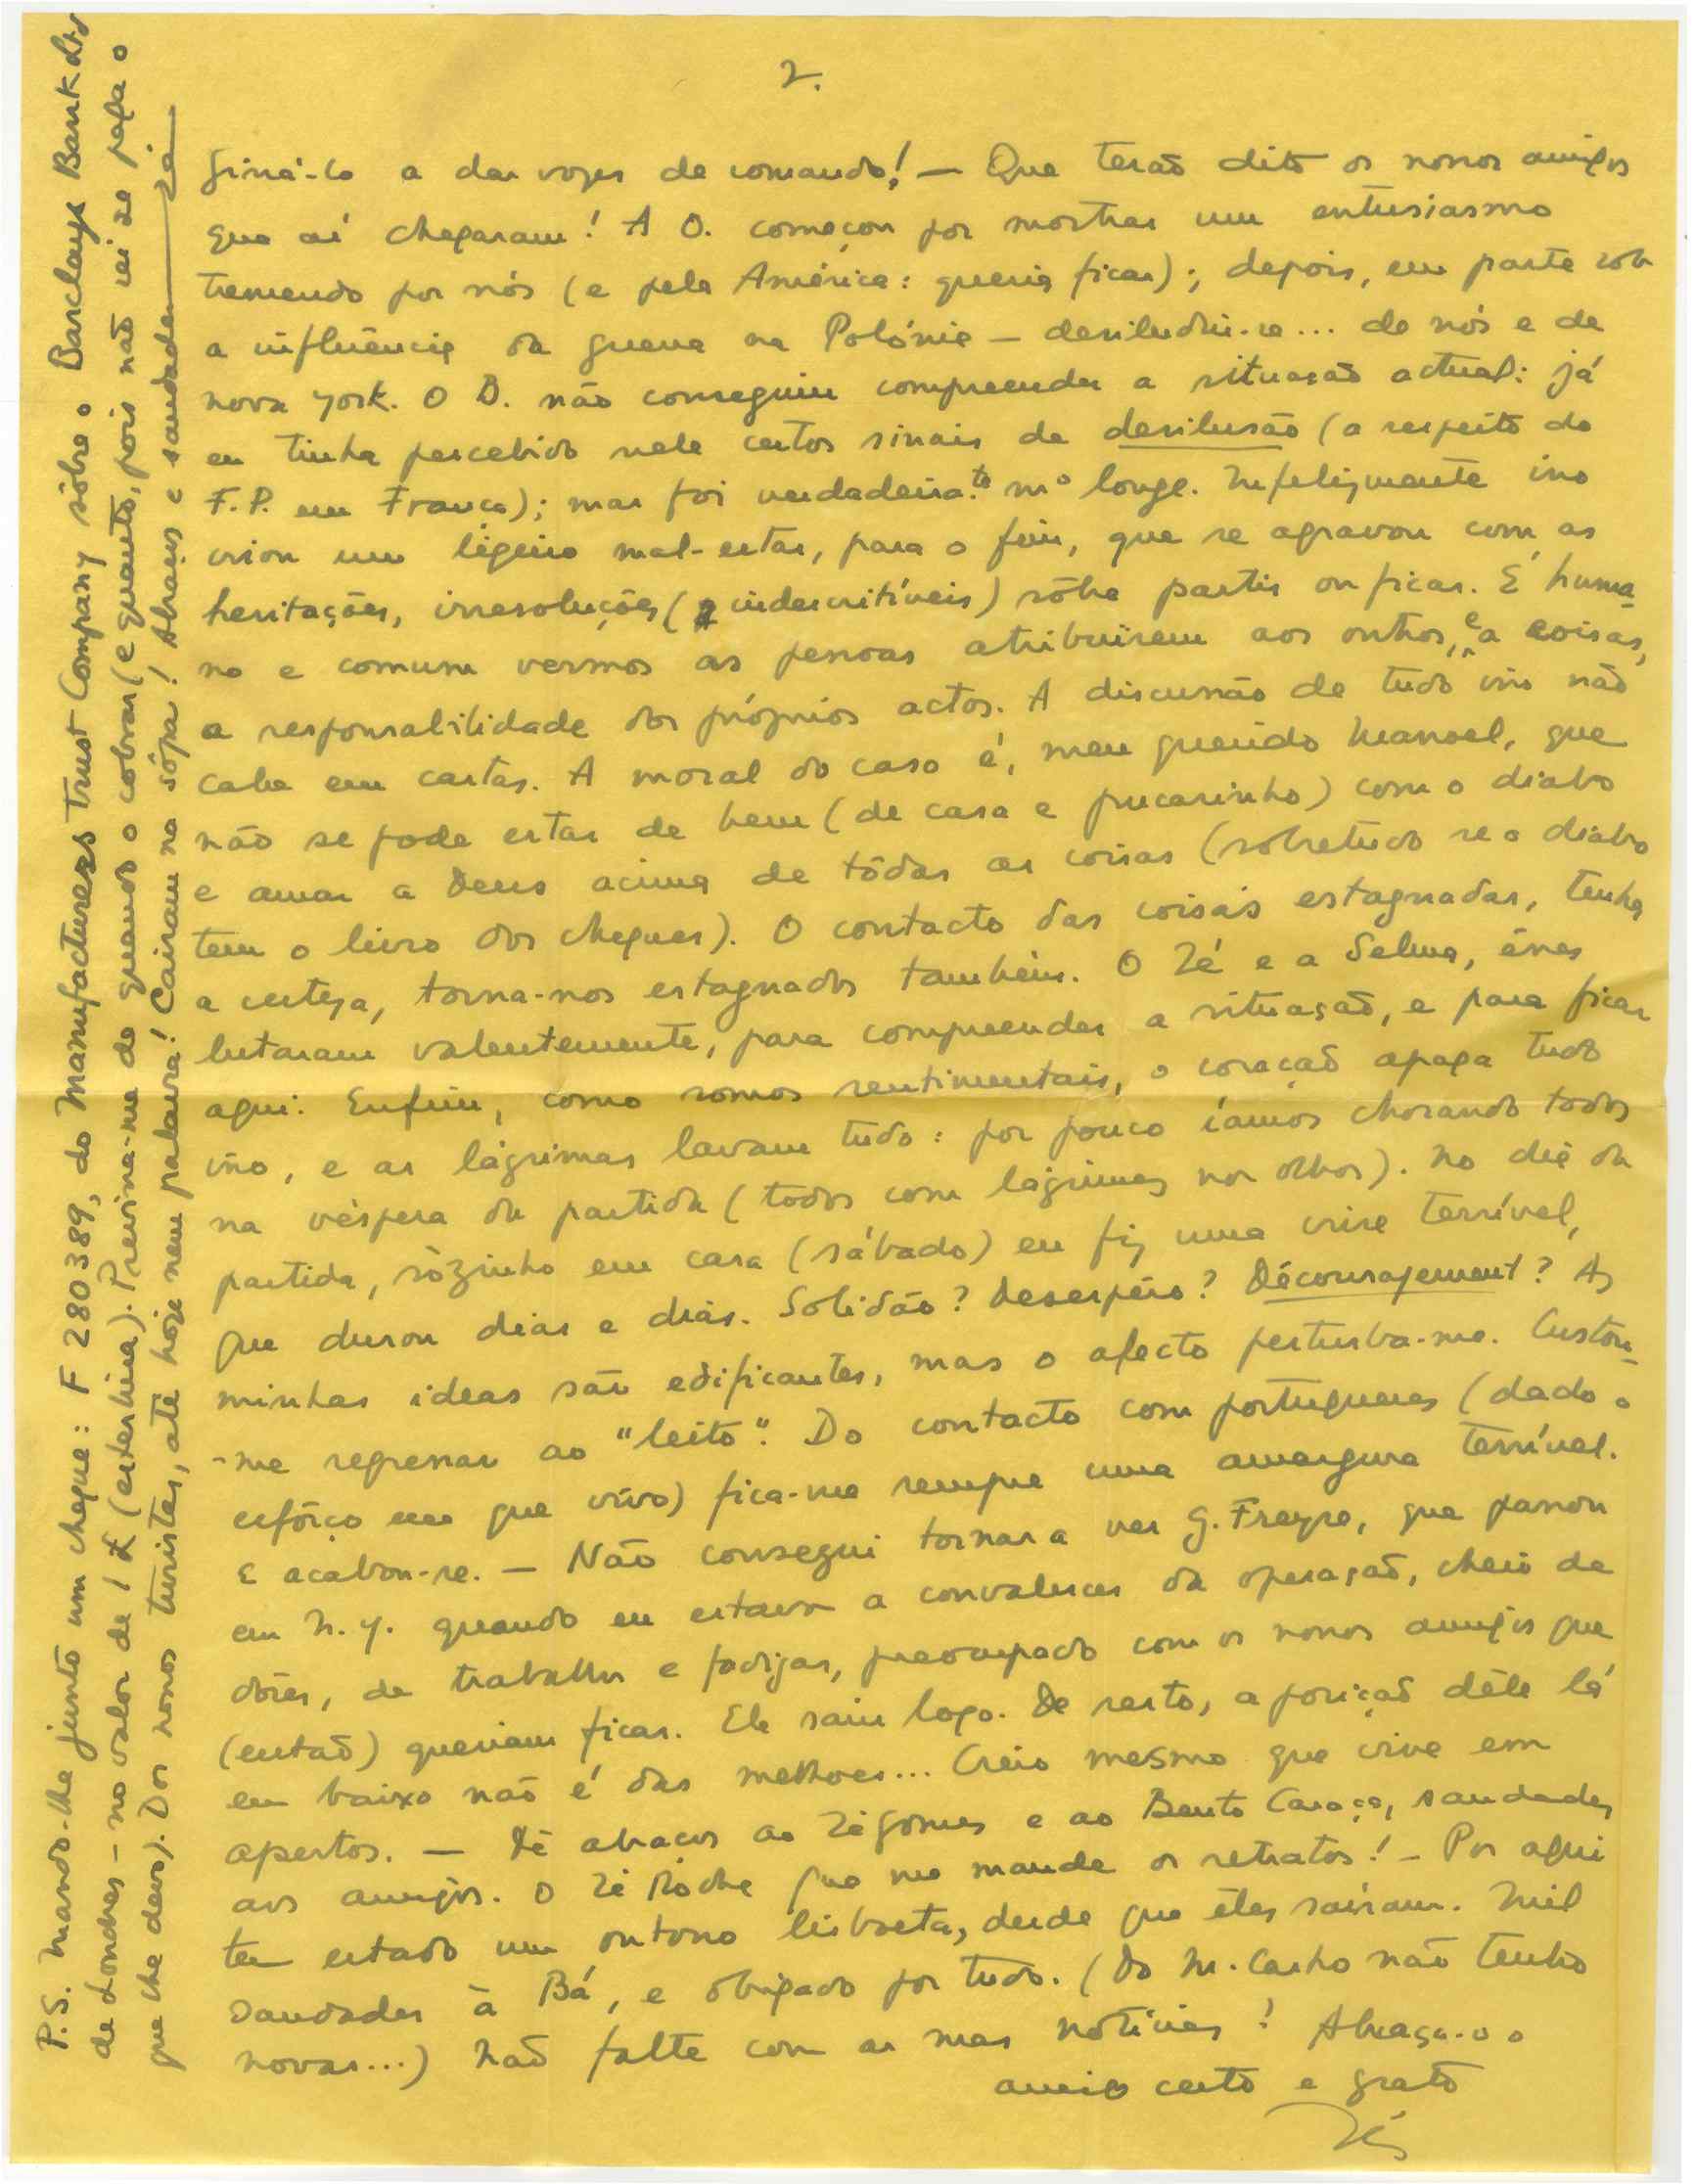 2.
giná-lo a dar vozes de comando! — Que terão dito os nossos amigos
que aí chegaram! A O. começou por mostrar um entusiasmo
tremendo por nós (e pela América: queria ficar); depois, em parte sob
a influência da guerra na Polónia — desiludiu-se... de nós e de
nova york. O D. não conseguiu compreender a situação actual: já
eu tinha percebido nele certos sinais de desilusão (a respeito do
F.P. em França); mas foi verdadeira.te mº longe. Infelizmente isso
criou um ligeiro mal-estar, para o fim, que se agravou com as
hesitações, irresoluções (indescritíveis) sôbre partir ou ficar. É huma-
no e comum vermos as pessoas atribuirem aos outros, e a coisas,
a responsabilidade dos próprios actos. A discussão de tudo isso não
cabe em cartas. A moral do caso é, meu querido Manoel, que
não se pode estar de bem (de casa e pucarinho) com o diabo
e amar a Deus acima de tôdas as coisas (sobretudo se o diabo
tem o livro dos cheques). O contacto das coisas estagnadas, tenha
a certeza, torna-nos estagnados também. O Zé e a Selma, êsses
lutaram valentemente, para compreender a situação, e para ficar
aqui. Enfim, como somos sentimentais, o coração apaga tudo
isso, e as lágrimas lavam tudo: por pouco íamos chorando todos
na véspera da partida (todos com lágrimas nos olhos). No dia da
partida, sòzinho em casa (sábado) eu fiz uma crise terrível,
que durou dias e dias. Solidão? Desespêro? Découragement? As
minhas ideas são edificantes, mas o afecto perturba-me. Custou-
-me regressar ao "leito". Do contacto com portugueses (dado o
esfôrço em que vivo) fica-me sempre uma amargura terrível.
E acabou-se. — Não consegui tornar a ver G. Freyre, que passou
em N.Y. quando eu estava a convalescer da operação, cheio de
dôres, de trabalho e fadigas, preocupado com os nossos amigos que
(então) queriam ficar. Ele saiu logo. De resto, a posição dêle lá
em baixo não é das melhores... Creio mesmo que vive em
apertos. — Dê abraços ao Zé Gomes e ao Bento Caraça, saudades
aos amigos. O Zé Rocha que me mande os retratos! — Por aqui
tem estado um outono lisboeta, desde que êles saíram. Mil
saudades à Bá, e obrigado por tudo. (Do M. Casho não tenho
novas...) Não falte com as suas notícias! Abraça-o o
amigo certo e grato
Zés
P.S. Mando-lhe junto um cheque: F 280389, do Manufacturers Trust Company sôbre o Barclays Bank Ltd
de Londres — no valor de 1 £ (esterlina). Previna-me de quando o cobrar (e quanto, pois não vai se paga o
que lhe devo). Dos nossos turistas, até hoje nem palavra! Cairam na sôpa! Abraços e saudades — Zé